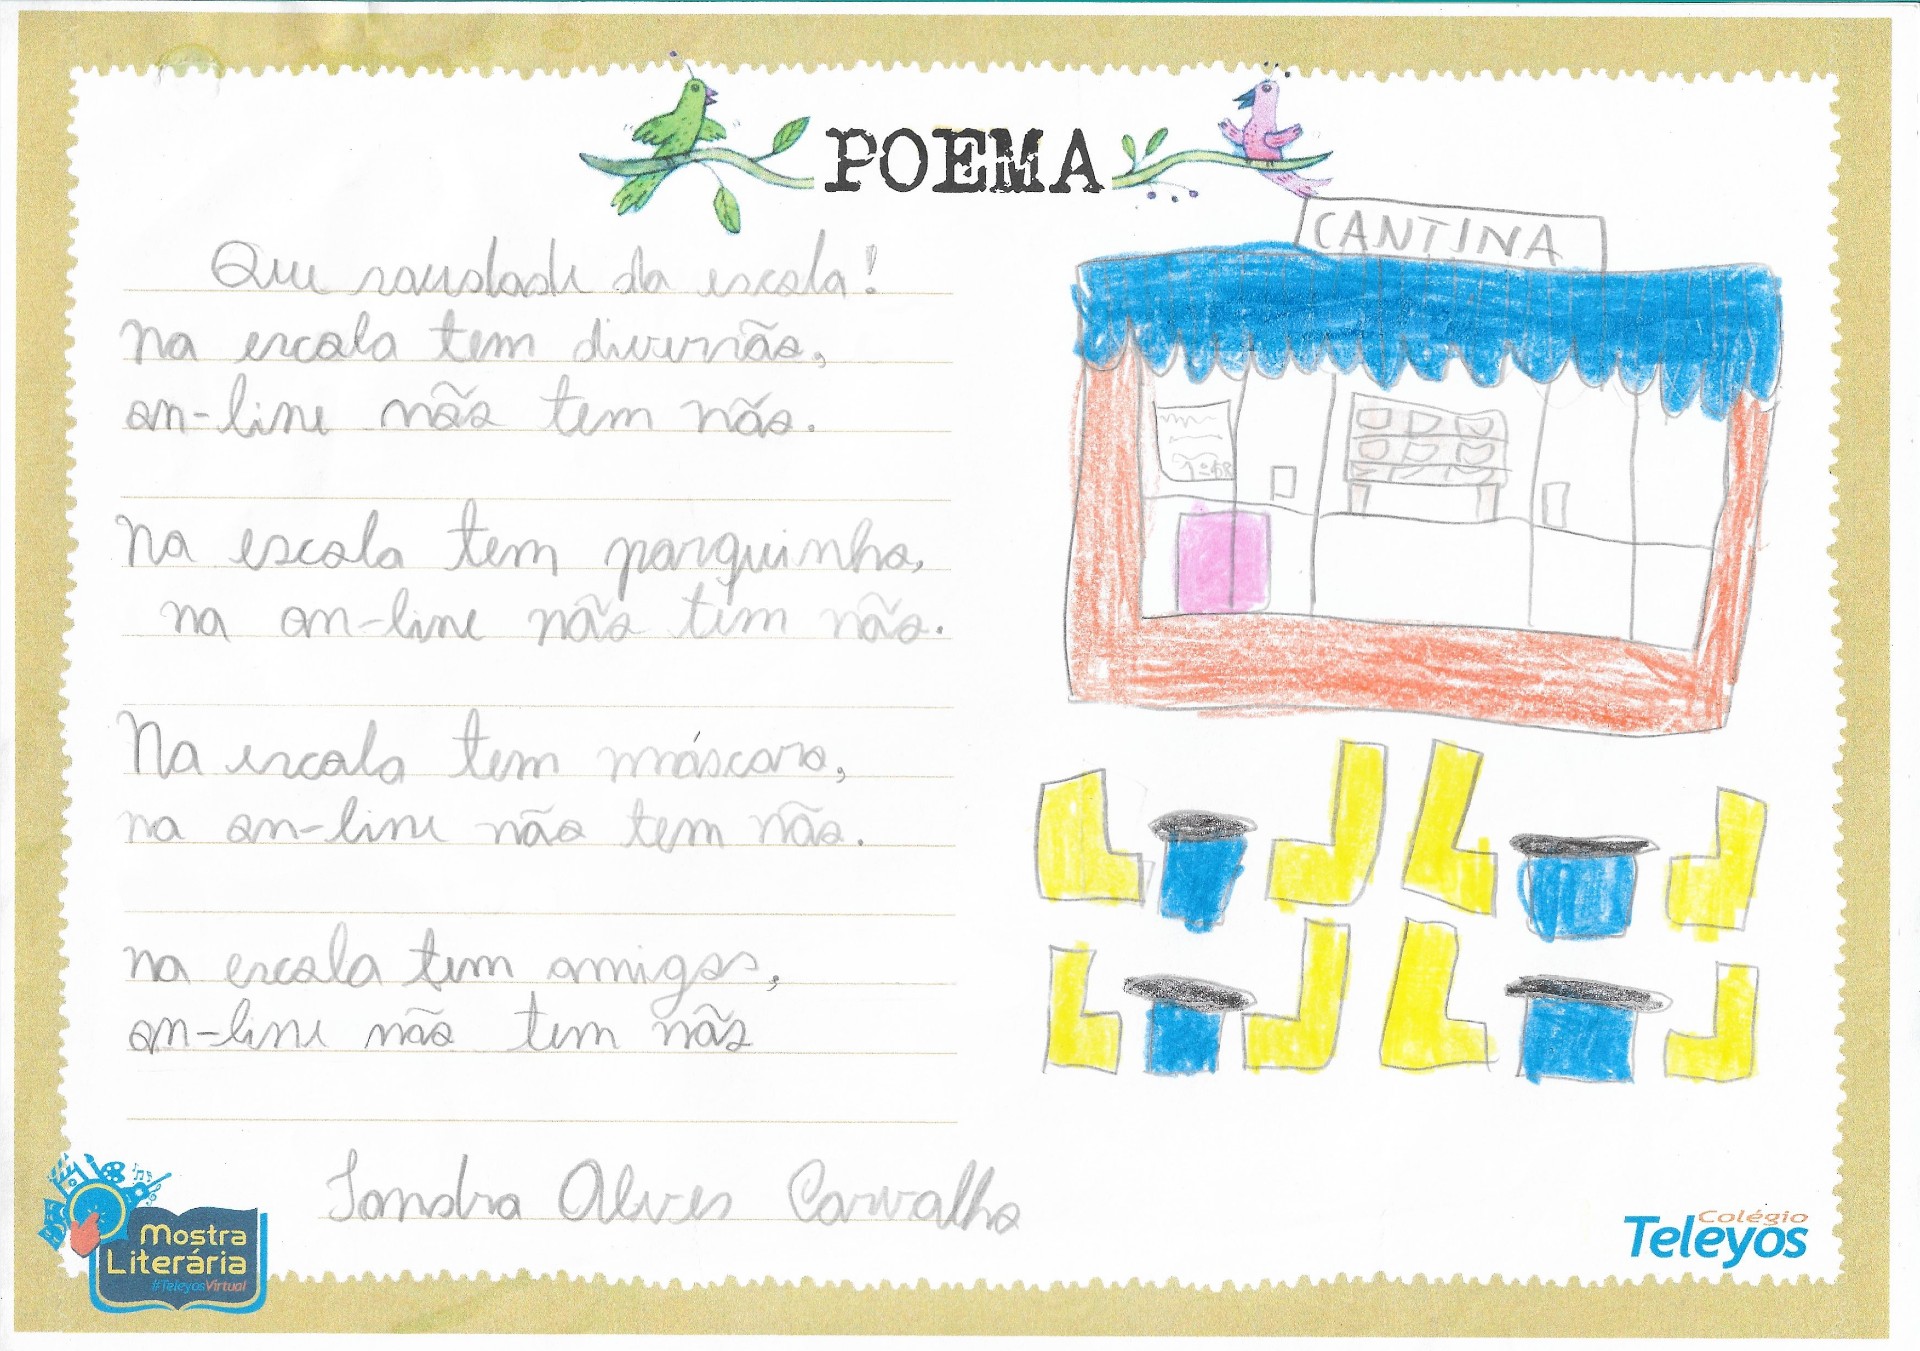 POEMA
CANTINA
Que saudade da escola!
Na escola tem diversão,
on-line não tem não.
Na escola tem parquinho,
na on-line não tem não.
Na escola tem máscara,
na on-line não tem não.
na escola tem amigos,
on-line não tem não
Sandra Alves Carvalho
Mostra
Literária
#TeleyosVirtual
Colégio
Teleyos